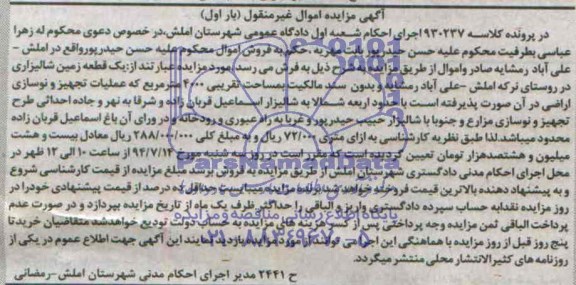 آگهی مزایده اموال غیرمنقول (بار اول)
در پرونده کلاسه ۹۳۰۲۳۷ اجرای احکام شعبه اول دادگاه عمومی شهرستان املش، در خصوص دعوی محکوم له زهرا
عباسی بطرفیت محکوم علیه حسن حیدرپور حکم به فروش اموال محکوم علیه حسن حیدرپور واقع در املش -
علی آباد رمشایه صادر و اموال از طریق مزایده به شرح ذیل به فروش می رسد. مورد مزایده عبارتند از: یک قطعه زمین شالیزاری
در روستای نرکه املش - علی آباد رمشایه و بدون سند مالکیت بمساحت تقریبی ۴۰۰۰ مترمربع که عملیات تجهیز و نوسازی
اراضی در آن صورت پذیرفته است با حدود اربعه شمالا به شالیزار اسماعیل قربان زاده و شرقا به نهر و جاده احداثی طرح
تجهیز و نوسازی مزارع و جنوبا با شالیزار حبیب حیدرپور و غربا به راه عبوری و رودخانه و ورای آن باغ اسماعیل قربان زاده
محدود میباشد. لذا طبق نظریه کارشناسی به ازای متری ۷۲/۰۰۰ ریال و به مبلغ کلی ۲۸۸/۰۰۰/۰۰۰ ریال معادل بیست و هشت
میلیون و هشتصدهزار تومان تعیین گردیده است که مقرر است در روز سه شنبه مورخ ۹۴/۷/۱۴ از ساعت ۱۰ الی ۱۲ ظهر در
محل اجرای احکام مدنی دادگستری شهرستان املش از طریق مزایده به فروش برسد مبلغ مزایده از قیمت کارشناسی شروع
و به پیشنهاد دهنده بالاترین قیمت فروخته خواهد شد. برنده مزایده میبایست حداقل ده درصد از قیمت پیشنهادی خود را در
روز مزایده نقدا به حساب سپرده دادگستری واریز و الباقی را حداکثر ظرف یک ماه از تاریخ مزایده بپردازد و در صورت عدم
پرداخت الباقی ثمن مزایده وجه پرداختی پس از کسر هزینه های مزایده به حساب دولت تودیع خواهد شد. متقاضیان خرید تا
پنج روز قبل از روز مزایده با هماهنگی این اجرا می توانند از مورد مزایده بازدید نمایند این آگهی جهت اطلاع عموم در یکی از
روزنامه های کثیرالانتشار محلی منتشر میگردد.
ح ۲۴۴۱ مدیر اجرای احکام مدنی شهرستان املش - رمضانی
پایگاه اطلاع رسانی مناقصه و مزایده
۰۲۱-۸۸۳۴۹۶۷۰-۵